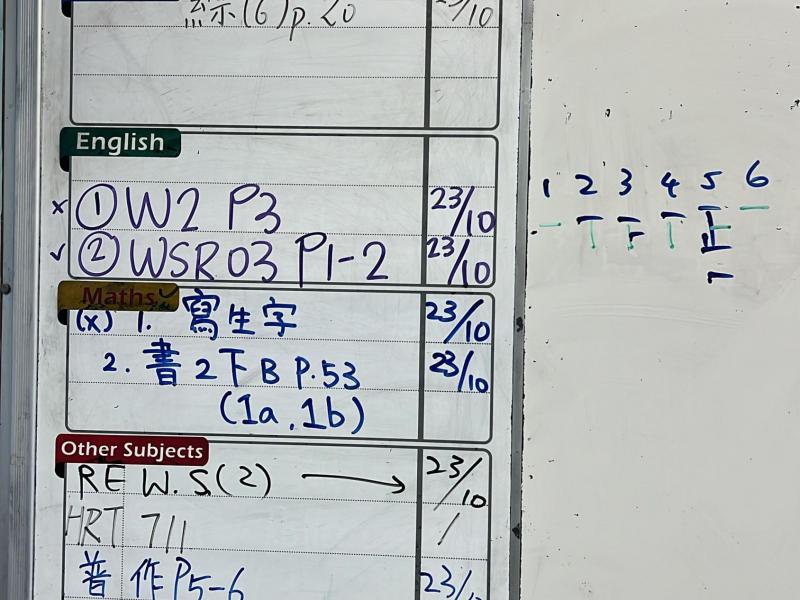 (6) p.20 23/10
English
x ① W2 P3 23/10
✓ ② WSR03 P1-2 23/10
Maths ✓
(x) 1. 寫生字 23/10
2. 書2下B P.53 23/10
(1a,1b)
Other Subjects
RE W.S.(2) → 23/10
HRT 7/1 /
普 作P5-6 23/
1 2 3 4 5 6